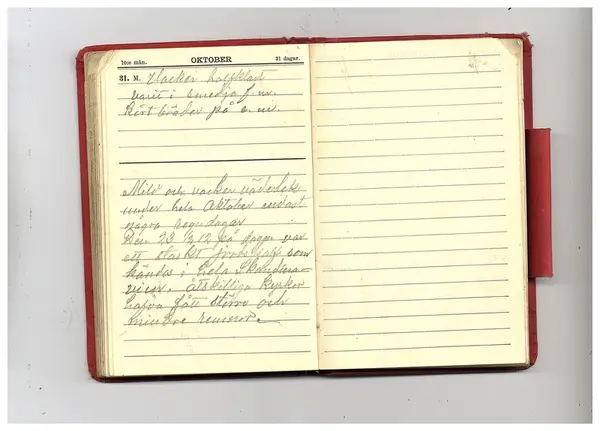 10:e mån. OKTOBER 31 dagar.
31. M. Vacker halfklart
varit i smedja f.m.
kört bräder på e.m.
Mild och vacker väderlek
under hela Oktober endast
några regndagar
Den 23 kl 12 på dagen var
ett starkt jordskalf som
kändes i hela Skandina-
vien. åtskilliga kyrkor
hafva fått större och
mindre remnor.